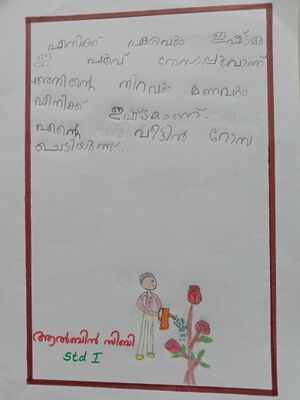 എനിക്ക് ഏറ്റവും ഇഷ്ടമു
ള്ള പൂവ് റോസാപ്പൂവാണ്
അതിന്റെ നിറവും മണവും
എനിക്ക് ഇഷ്ടമാണ്.
എന്റെ വീട്ടിൽ റോസ
ചെടിയുണ്ട്.
ആൽബിൻ സിബി
Std I